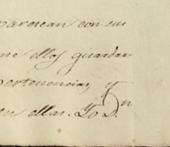 parescan con su
me ellos guardar
pertenencias, y
en ellas. Yo Dn